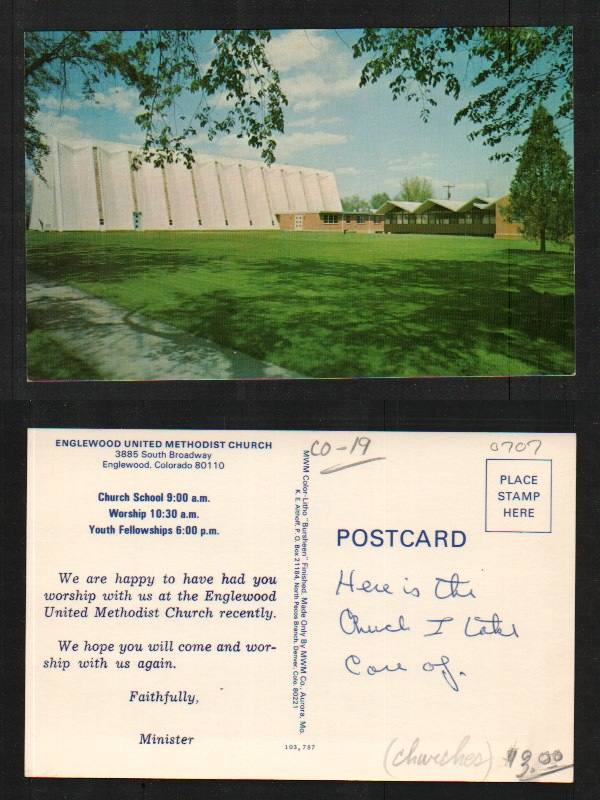 ENGLEWOOD UNITED METHODIST CHURCH
3885 South Broadway
Englewood, Colorado 80110
Church School 9:00 a.m.
Worship 10:30 a.m.
Youth Fellowships 6:00 p.m.
We are happy to have had you
worship with us at the Englewood
United Methodist Church recently.
We hope you will come and wor-
ship with us again.
Faithfully,
Minister
MWM Color-Litho "Bursheen" Finished. Made Only By MWM Co., Aurora, Mo.
K. E. Althoff, P. O. Box 21184, North Pecos Branch, Denver, Colo. 80221
103,787
CO-19
0707
PLACE
STAMP
HERE
POSTCARD
Here is the
Church I take
Care of.
(churches) $3.00